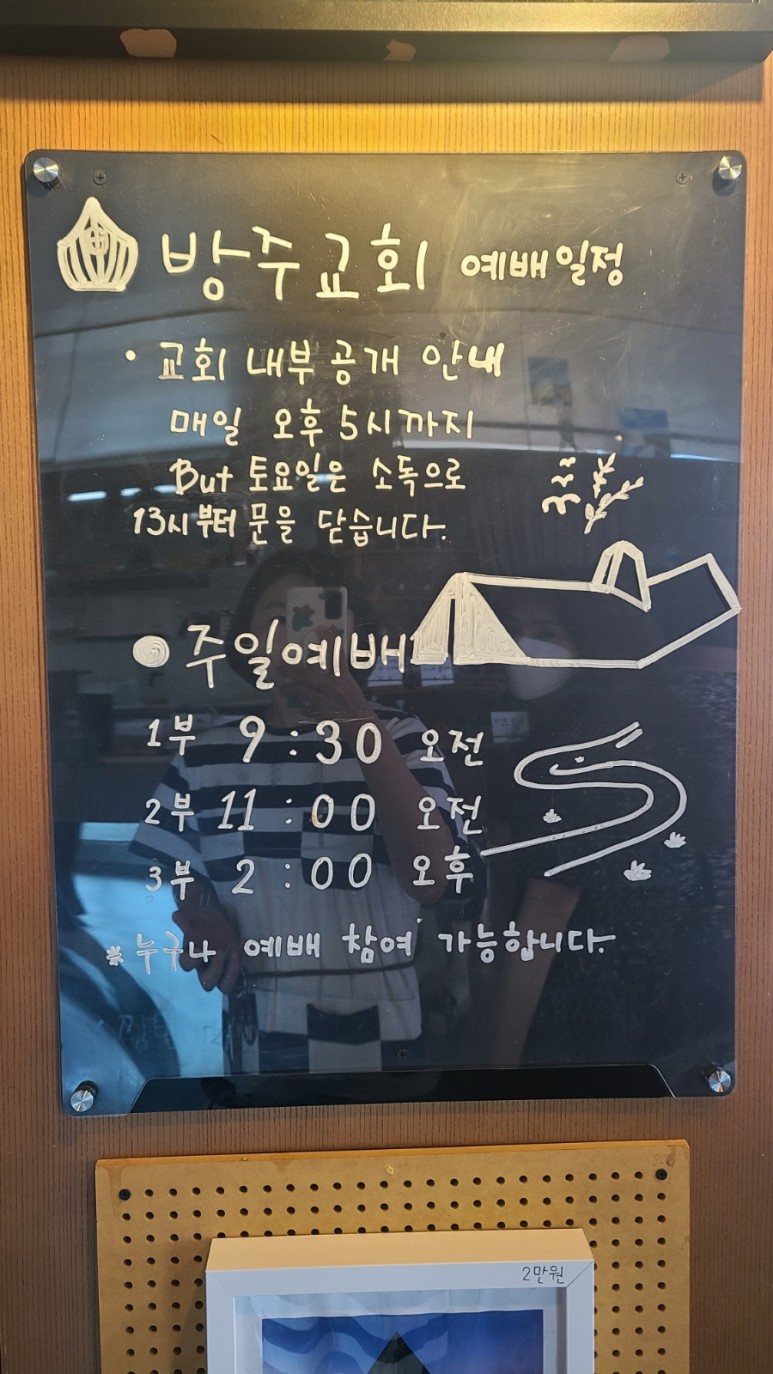 방주교회 예배일정
• 교회 내부 공개 안내
매일 오후 5시까지
But 토요일은 소독으로
13시부터 문을 닫습니다.
● 주일예배
1부 9:30 오전
2부 11:00 오전
3부 2:00 오후
※ 누구나 예배 참여 가능합니다.
2만원